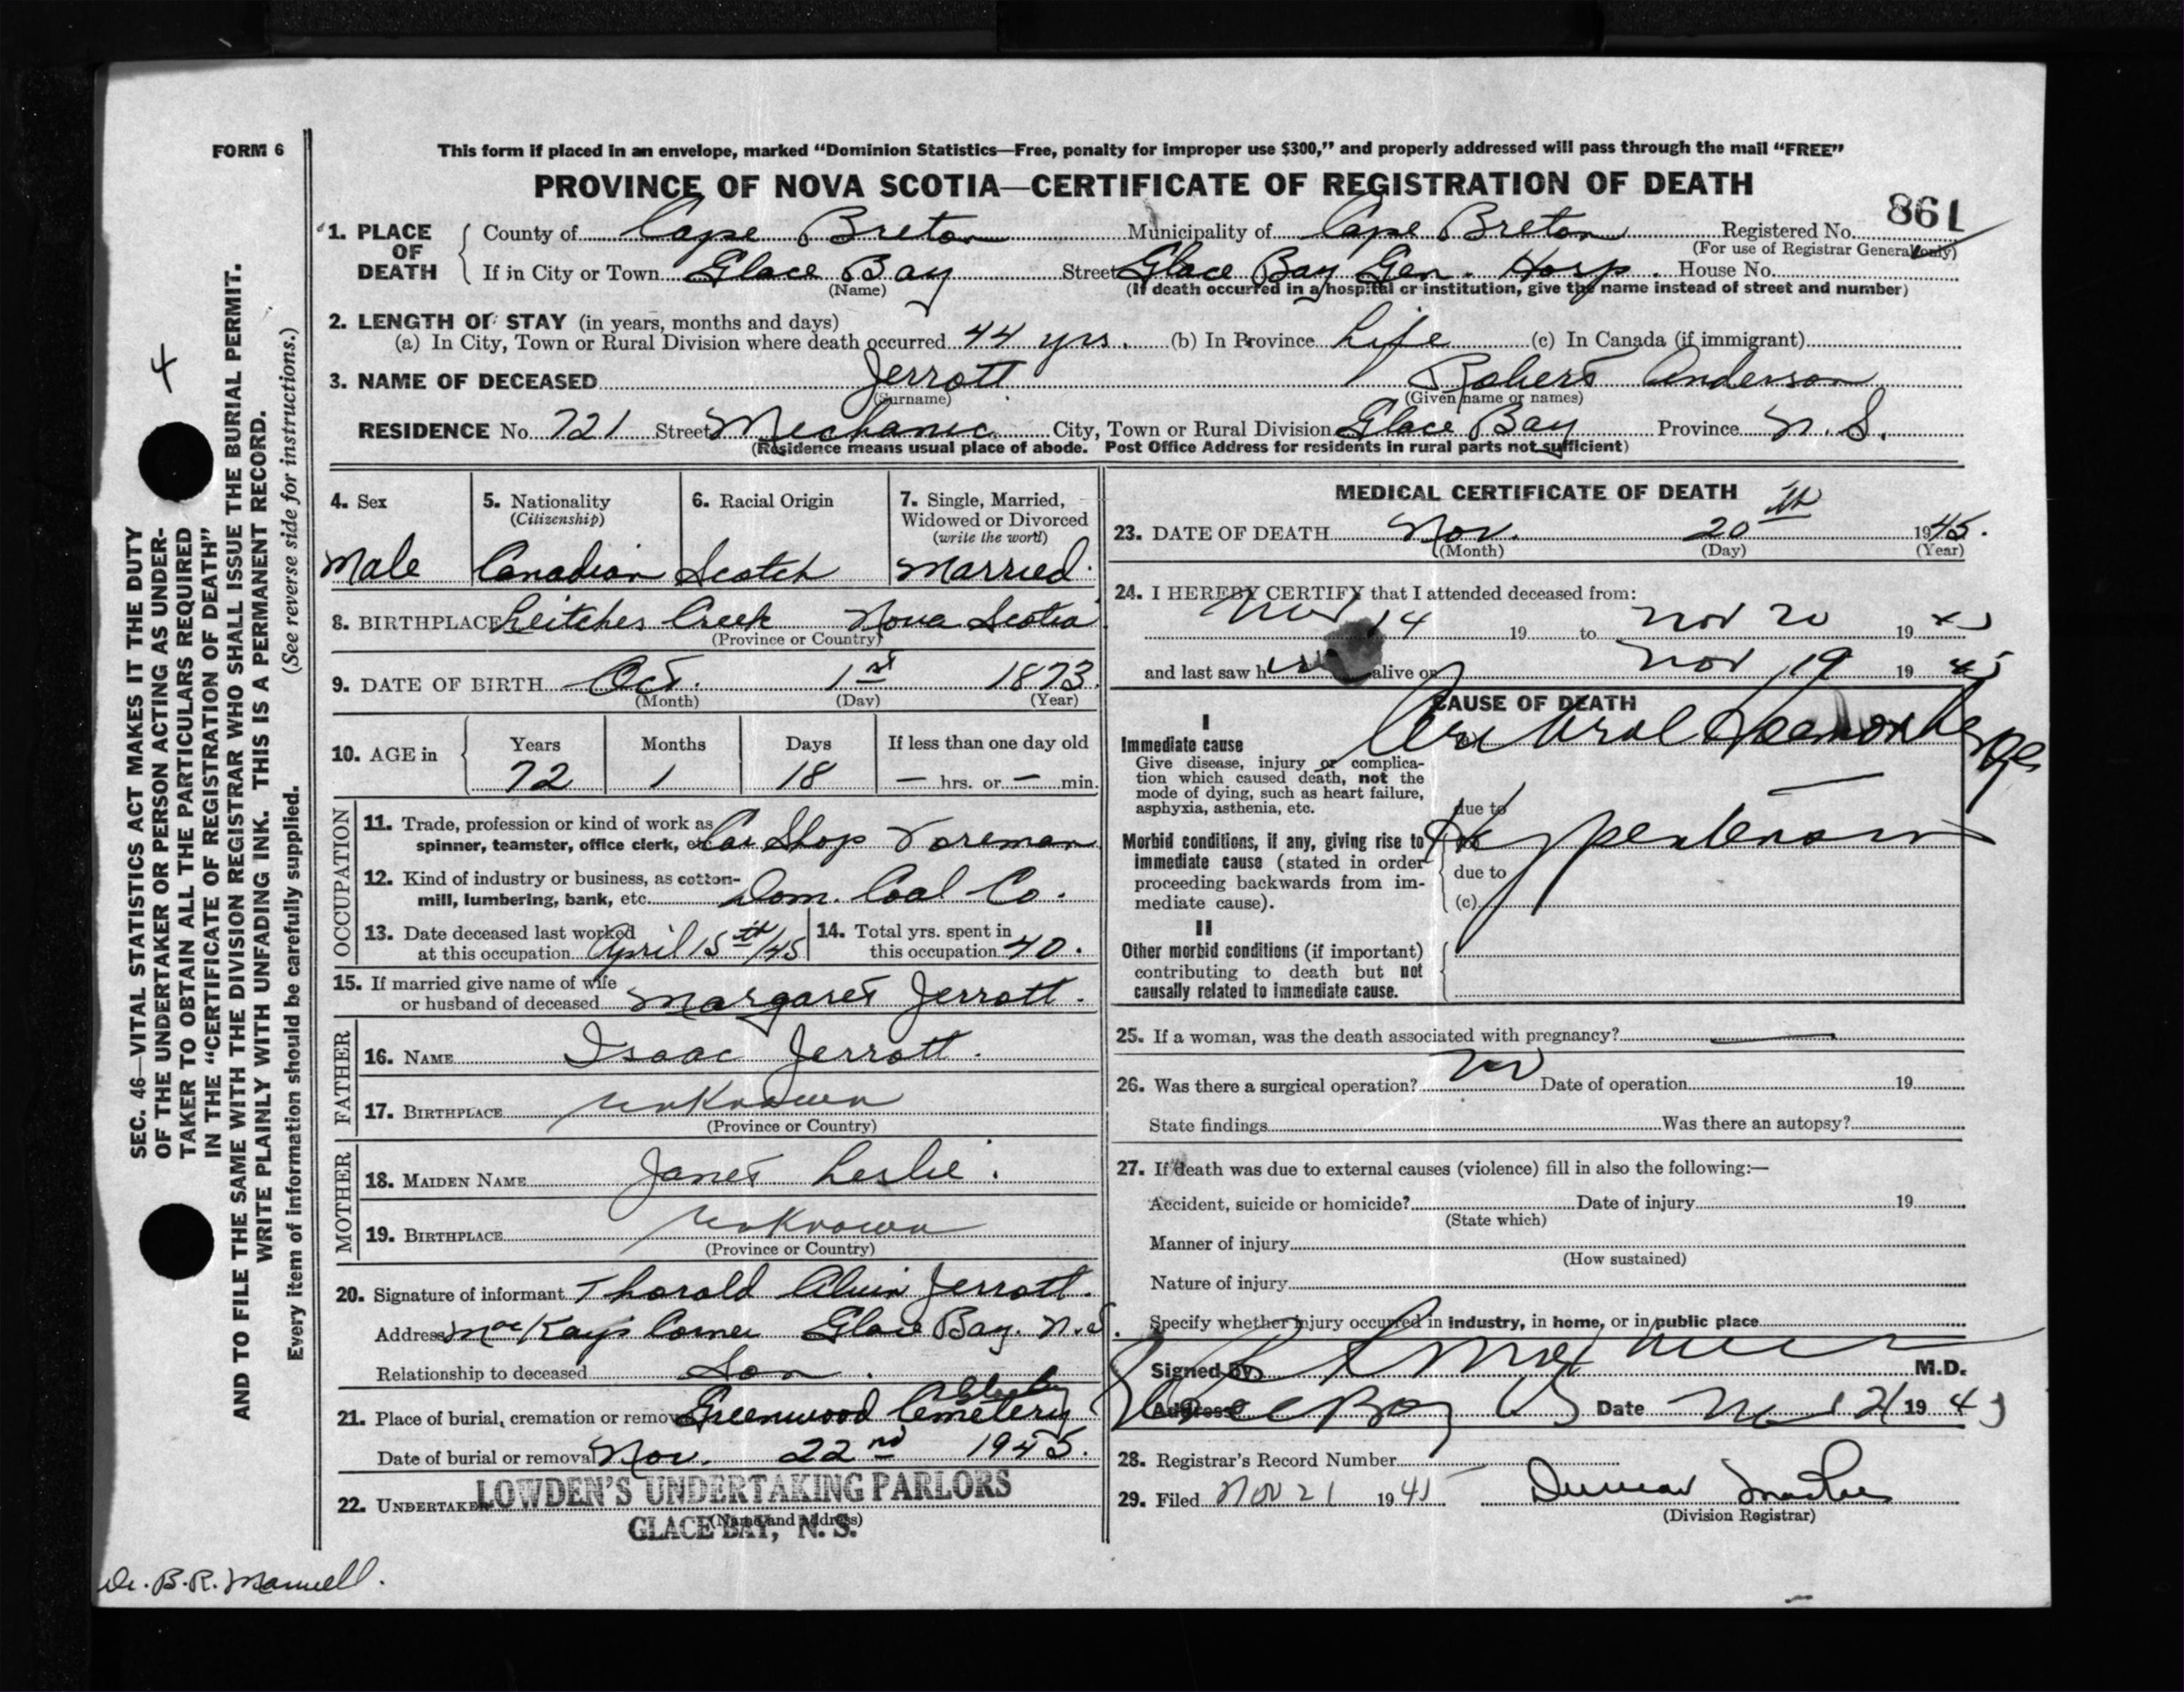 FORM 6
This form if placed in an envelope, marked “Dominion Statistics—Free, penalty for improper use $300,” and properly addressed will pass through the mail “FREE”
PROVINCE OF NOVA SCOTIA—CERTIFICATE OF REGISTRATION OF DEATH
861
1. PLACE OF DEATH
County of Cape Breton Municipality of Cape Breton Registered No.
(For use of Registrar General only)
If in City or Town Glace Bay Street Glace Bay Gen. Hosp. House No.
(Name) (If death occurred in a hospital or institution, give the name instead of street and number)
2. LENGTH OF STAY (in years, months and days)
(a) In City, Town or Rural Division where death occurred 44 yrs. (b) In Province Life (c) In Canada (if immigrant)
3. NAME OF DECEASED Jerrott Robert Anderson
(Surname) (Given name or names)
RESIDENCE No. 721 Street Mechanic City, Town or Rural Division Glace Bay Province N. S.
(Residence means usual place of abode. Post Office Address for residents in rural parts not sufficient)
4. Sex
Male
5. Nationality
(Citizenship)
Canadian
6. Racial Origin
Scotch
7. Single, Married,
Widowed or Divorced
(write the word)
Married.
8. BIRTHPLACE Leitches Creek Nova Scotia
(Province or Country)
9. DATE OF BIRTH Oct. 1st 1873.
(Month) (Day) (Year)
10. AGE in
Years Months Days If less than one day old
72 1 18 — hrs. or — min.
OCCUPATION
11. Trade, profession or kind of work as
spinner, teamster, office clerk, etc. Car Shop Foreman
12. Kind of industry or business, as cotton-
mill, lumbering, bank, etc. Dom. Coal Co.
13. Date deceased last worked
at this occupation April 15th/45
14. Total yrs. spent in
this occupation 40.
15. If married give name of wife
or husband of deceased Margaret Jerrott.
FATHER
16. NAME Isaac Jerrott.
17. BIRTHPLACE unknown
(Province or Country)
MOTHER
18. MAIDEN NAME Janet Leslie.
19. BIRTHPLACE unknown
(Province or Country)
20. Signature of informant Thorold Alvin Jerrott.
Address MacKays Corner Glace Bay. N.S.
Relationship to deceased Son.
21. Place of burial, cremation or removal Greenwood Cemetery
Date of burial or removal Nov. 22nd 1945.
22. UNDERTAKER LOWDEN'S UNDERTAKING PARLORS
(Name and address)
GLACE BAY, N. S.
MEDICAL CERTIFICATE OF DEATH
23. DATE OF DEATH Nov. 20th 1945.
(Month) (Day) (Year)
24. I HEREBY CERTIFY that I attended deceased from:
Nov 14 19 to Nov 20 19 45
and last saw h alive on Nov 19 19 45
CAUSE OF DEATH
I
Immediate cause
Give disease, injury or complica-
tion which caused death, not the
mode of dying, such as heart failure,
asphyxia, asthenia, etc.
Cerebral Haemorrhage
due to
Morbid conditions, if any, giving rise to
immediate cause (stated in order
proceeding backwards from im-
mediate cause).
Hypertension
due to
(c)
II
Other morbid conditions (if important)
contributing to death but not
causally related to immediate cause.
25. If a woman, was the death associated with pregnancy? —
26. Was there a surgical operation? No Date of operation 19
State findings Was there an autopsy?
27. If death was due to external causes (violence) fill in also the following:—
Accident, suicide or homicide? Date of injury 19
(State which)
Manner of injury
(How sustained)
Nature of injury
Specify whether injury occurred in industry, in home, or in public place
Signed by M.D.
Address Glace Bay Date Nov 21 19 45
28. Registrar's Record Number
29. Filed Nov 21 19 45 Duncan
(Division Registrar)
4
SEC. 46—VITAL STATISTICS ACT MAKES IT THE DUTY
OF THE UNDERTAKER OR PERSON ACTING AS UNDER-
TAKER TO OBTAIN ALL THE PARTICULARS REQUIRED
IN THE “CERTIFICATE OF REGISTRATION OF DEATH”
AND TO FILE THE SAME WITH THE DIVISION REGISTRAR WHO SHALL ISSUE THE BURIAL PERMIT.
WRITE PLAINLY WITH UNFADING INK. THIS IS A PERMANENT RECORD.
Every item of information should be carefully supplied. (See reverse side for instructions.)
Dr. B. R.